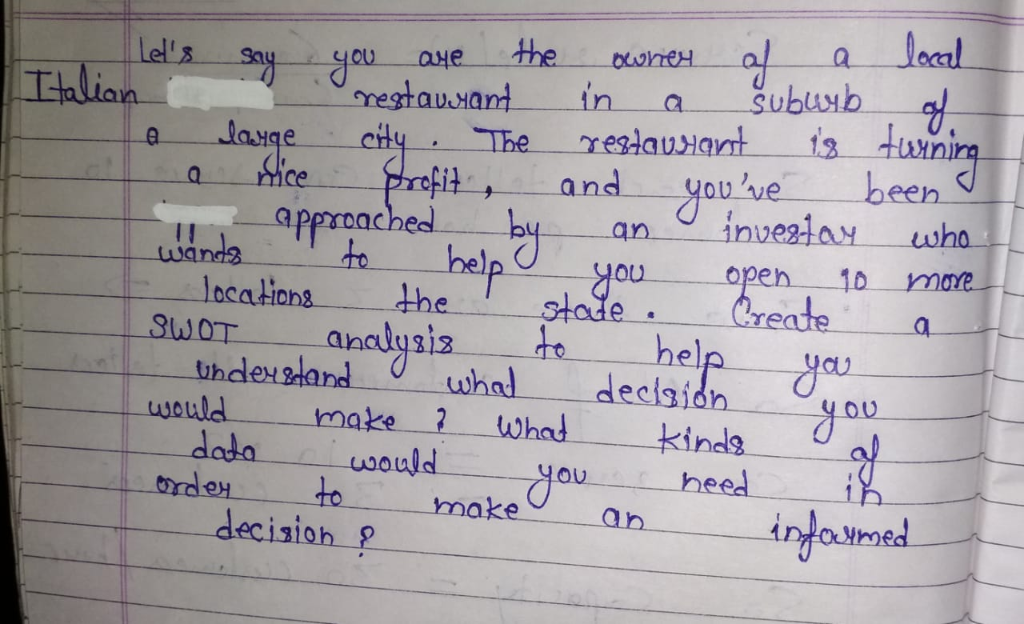 Let's say you are the owner of a local
Italian restaurant in a suburb of
a large city. The restaurant is turning
a nice profit, and you've been
approached by an investor who
wants to help you open 10 more
locations the state. Create a
SWOT analysis to help you
understand what decision you
would make? What kinds of
data would you need in
order to make an informed
decision?